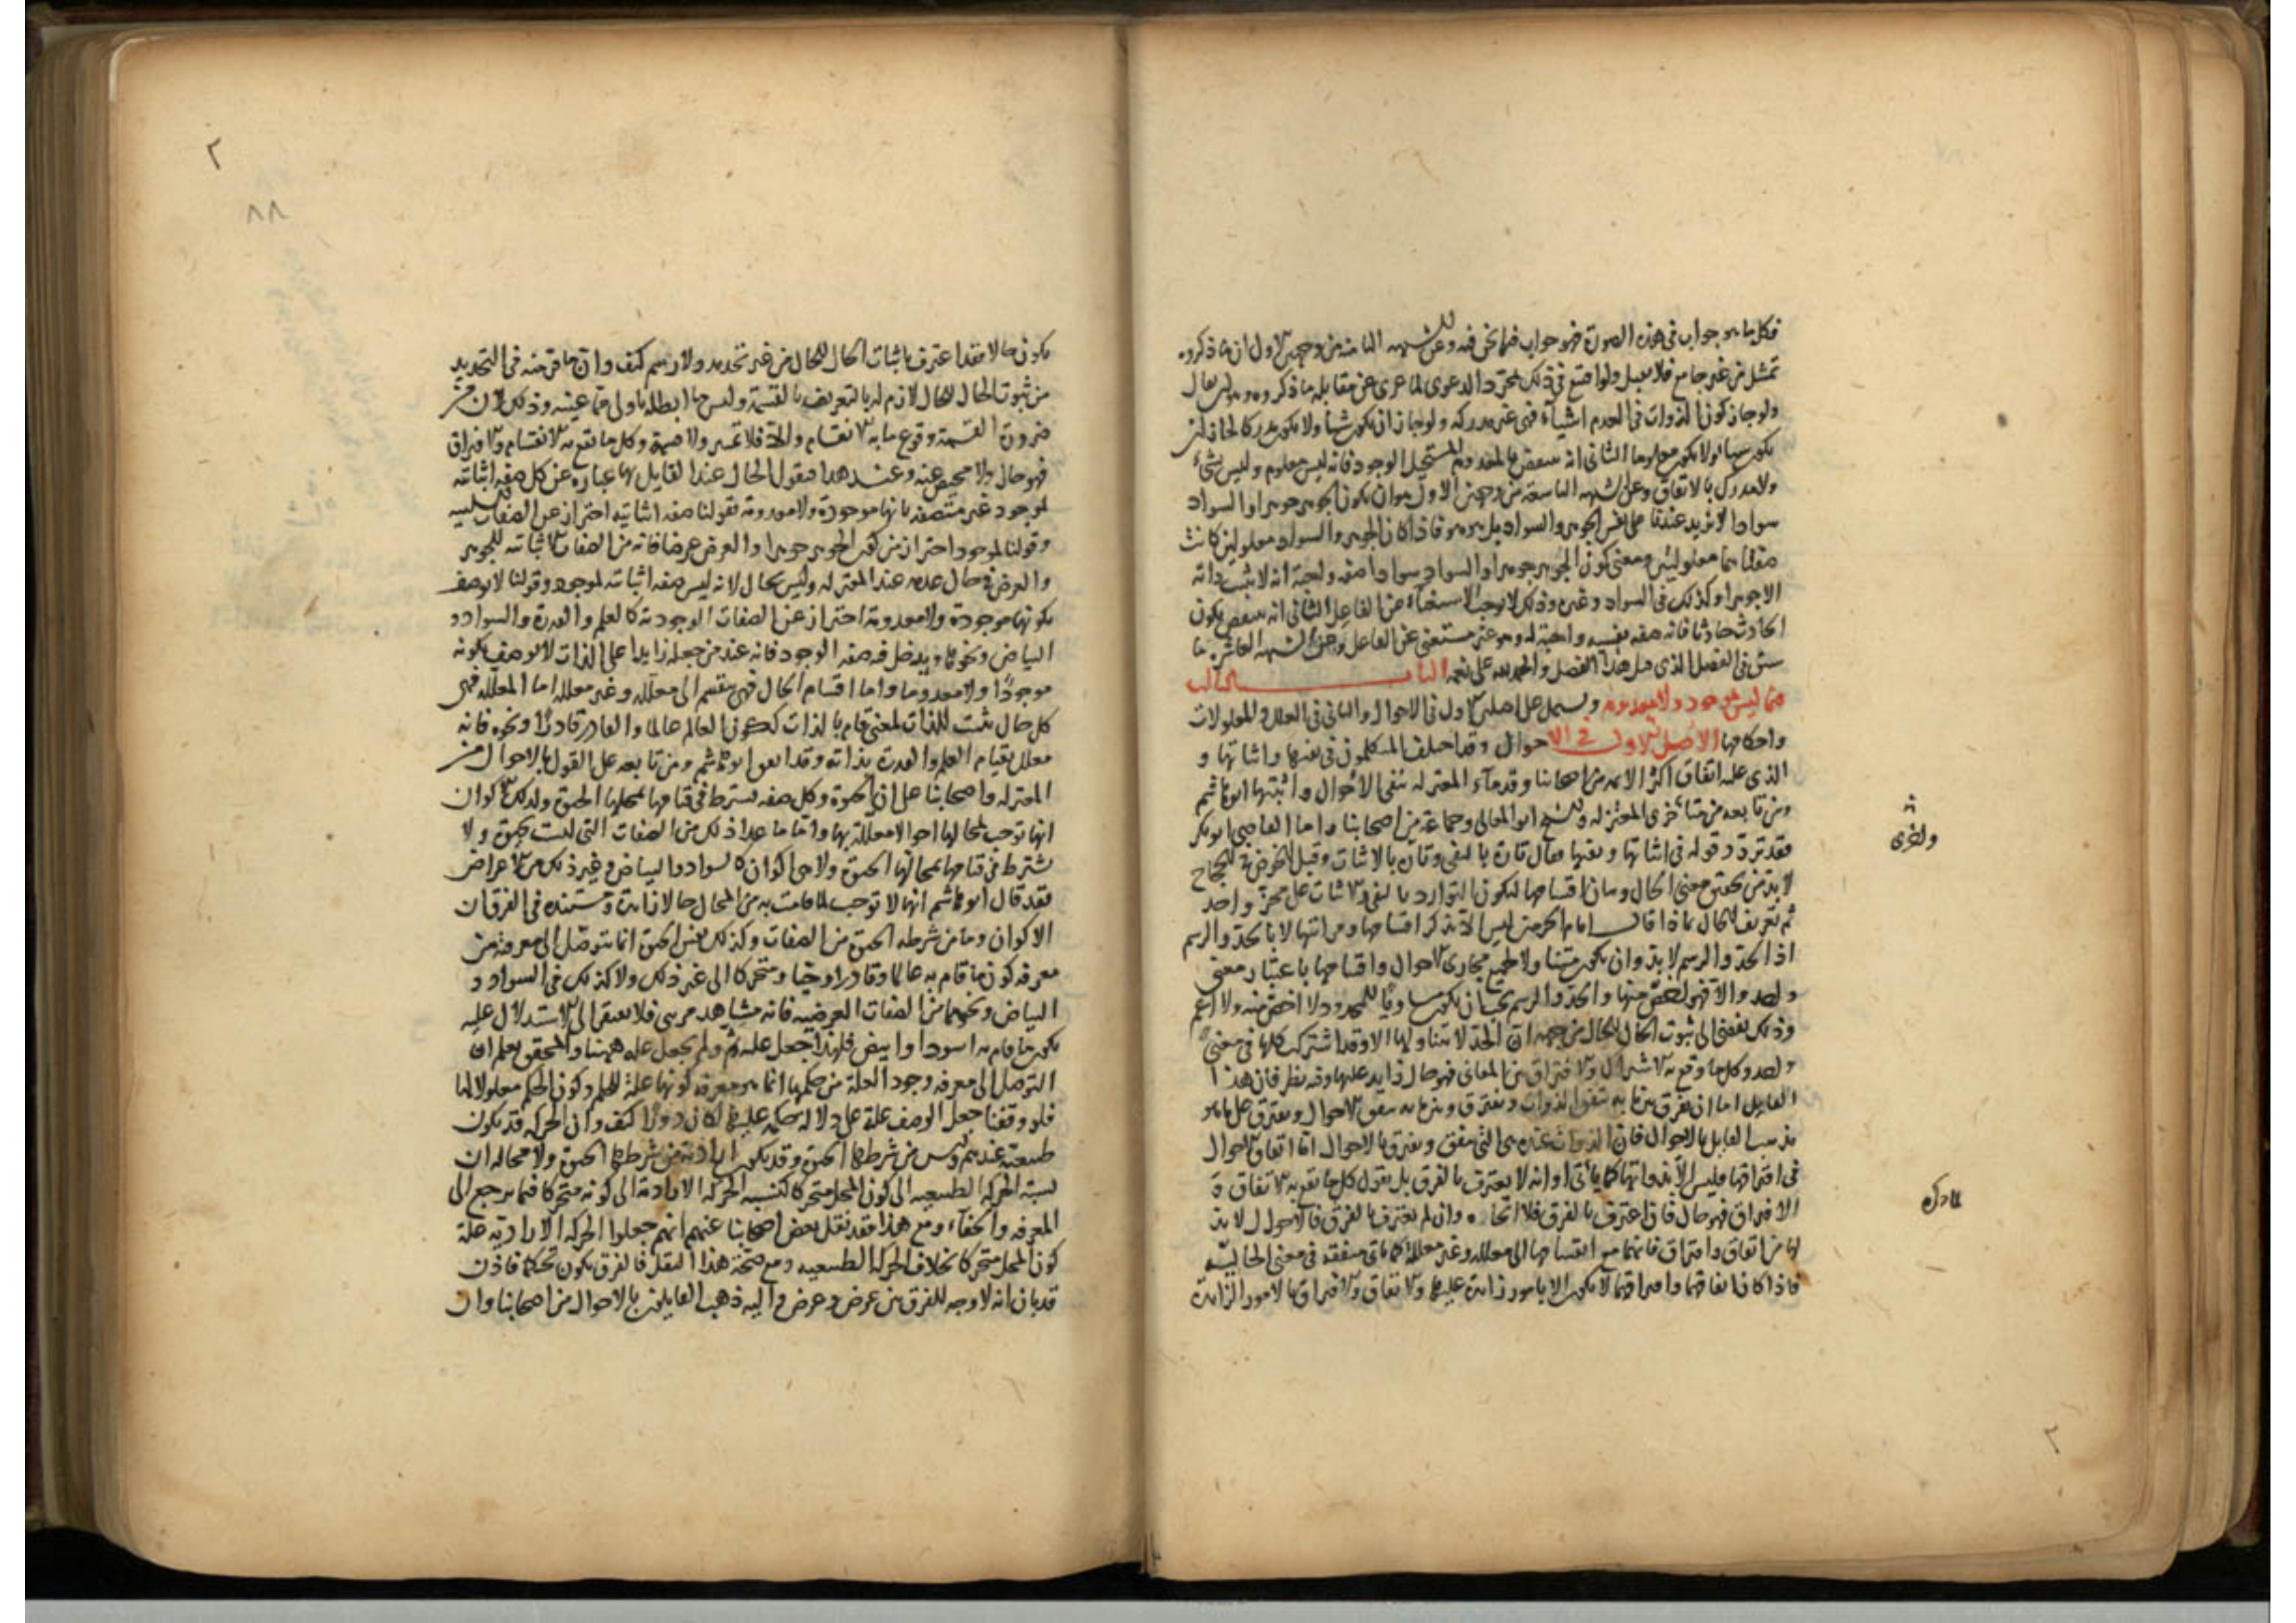 فكل ما هو جواب فى هذه الصورة فهو جواب فيما نحن فيه وعن الشبهه الثامنه من وجهين الاول ان ما ذكروه
تمثيل من غير جامع فلا يقبل ولو اقتنع فى ذلك بمجرد الدعوى لما عرى عن مقابله ما ذكروه وهو ان يقال
ولو جاز كون الذوات فى العدم اشياء فهى غير مدركه ولو جاز ان يكون شيأ ولا يكون مدركا لجاز ان
يكون شيأ ولا يكون معلوما الثانى انه ينتقض بالمعدوم المستحيل الوجود فانه ليس معلوم وليس بشىء
ولا مدرك بالاتفاق وعن الشبهه التاسعه من وجهين الاول هو ان يكون الجوهر جوهرا والسواد
سوادا لا يزيد عندنا على نفس الجوهر والسواد بل هو هو فاذا كان الجوهر والسواد معلولين كانت
صفتاهما معلولتين ومعنى كون الجوهر جوهرا والسواد سوادا صفه واجبة انه لا يثبت ذاته
الا جوهرا وكذلك فى السواد وغيره وذلك لا يوجب الاستغناء عن الفاعل الثانى انه ينتقض بكون
الحادث حادثا فانه صفه نفسه واجبة له وهو غير مستغنى عن الفاعل وعن الشبهه العاشره ما
سبق فى الفصل الذى قبل هذا الفصل والحمد لله على نعمه الباب الثالث
فيما ليس بموجود ولا معدوم ويشتمل على اصلين الاول فى الاحوال والثانى فى العلل والمعلولات
واحكامها الاصل الاول فى الاحوال وقد اختلف المتكلمون فى نفيها واثباتها و
الذى عليه اتفاق اكثر الائمه من اصحابنا وقدماء المعتزله نفى الاحوال واثبتها ابو هاشم
ومن تابعه من متأخرى المعتزله والشيخ ابو المعالى وجماعة من اصحابنا واما القاضى ابو بكر
فقد تردد قوله فى اثباتها ونفيها فقال تارة بالنفى وتارة بالاثبات وقبل الخوض فى الحجاج
لا بد من تحقيق معنى الحال وبيان اقسامها ليكون التوارد بالنفى والاثبات على محز واحد
ثم تعريف الحال بماذا قال امام الحرمين ليس الا بذكر اقسامها ومراتبها لا بالحد والرسم
اذ الحد والرسم لا بد وان يكون متناولا لجميع مجارى الاحوال واقسامها باعتبار معنى
واحد والا فهو اخص منها والحد والرسم يجب ان يكون مساويا للمحدود لا اخص منه ولا اعم
وذلك يفضى الى ثبوت الحال للحال من جهه ان الحد لا يتناولها الا وقد اشتركت كلها فى معنى
واحد وكل ما وقع به الاشتراك والافتراق بين المعانى فهو حال زايد عليها وفيه نظر فان هذا
القايل اما ان يفرق بين ما به تتفق الذوات وتفترق وبين ما به تتفق الاحوال وتفترق على ما هو
مذهب القايل بالاحوال فان الذوات عنده هى التى تتفق وتفترق بالاحوال اما اتفاق الاحوال
فى افتراقها فليس الا بذواتها كما يأتى او انه لا يعترف بالفرق بل يقول كل ما يقع به الاتفاق و
الافتراق فهو حال فان اعترف بالفرق فلا اتجاه وان لم يعترف بالفرق فالاحوال لا بد
لها من اتفاق وافتراق فانهما مع انقسامها الى معلله وغير معلله كما يأتى متفقه فى معنى الحاليه
فاذا كان اتفاقها وافتراقها لا يكون الا بامور زايدة عليها والاتفاق والافتراق بالامور الزايدة
واخرى
ما ذكره
٢
٨٨
يكون حالا فقد اعترف باثبات الحال للحال من غير تحديد ولا رسم كيف وان ما فر منه فى التحديد
من ثبوت الحال للحال لازم له بالتعريف بالقسمة وليس ما ابطله باولى مما عينه وذلك لان من
ضرورة القسمة وقوع ما به الانقسام والا فلا تميز ولا قسمة وكل ما يقع به الانقسام والافتراق
فهو حال ولا محيص عنه وعند هذا فنقول الحال عند القايل بها عبارة عن كل صفه اثباتيه
لموجود غير متصفه بانها موجودة ولا معدومة فقولنا صفه اثباتيه احتراز عن الصفات السلبيه
وقولنا لموجود احتراز من كون الجوهر جوهرا والعرض عرضا فانه من الصفات الاثباتيه للجوهر
والعرض فى حال عدمه عند المعتزله وليس بحال لانه ليس صفه اثباتيه لموجود وقولنا لا يوصف
بكونها موجودة ولا معدومة احتراز عن الصفات الوجودية كالعلم والقدرة والسواد و
البياض ونحوها ويدخل فيه صفه الوجود فانه عند من جعله زايدا على الذات لا يوصف بكونه
موجودا ولا معدوما واما اقسام الحال فهى منقسم الى معلله وغير معلله اما المعلله فهى
كل حال يثبت للذات لمعنى قام بالذات ككون العالم عالما والقادر قادرا ونحوه فانه
معلل بقيام العلم والقدرة بذاته وقد اتفق ابو هاشم ومن تابعه على القول بالاحوال من
المعتزله واصحابنا على ان الحيوة وكل صفه يشترط فى قيامها بمحلها الحيوة وكذلك الاكوان
انها توجب لمحالها احوالا معللة بها واما ما عدا ذلك من الصفات التى ليست بحيوة ولا
يشترط فى قيامها بمحالها الحيوة ولا هى اكوان كالسواد والبياض وغير ذلك من الاعراض
فقد قال ابو هاشم انها لا توجب لما قامت به من المحال حالا زايدة ومستنده فى الفرق ان
الاكوان وما من شرطه الحيوة من الصفات وكذلك نفس الحيوة انما يتوصل الى معرفته من
معرفه كون ما قام به عالما وقادرا وحيا ومتحركا الى غير ذلك ولا كذلك فى السواد و
البياض ونحوهما من الصفات العرضيه فانه مشاهد مرىى فلا يفتقر الى الاستدلال عليه
بكون ما قام به اسود او ابيض فلهذا جعل علة ثم ولم يجعل علة ههنا والمحقق يعلم ان
التوصل الى معرفه وجود العلة من حكمها انما هو معرفه كونها علة للحكم وكون الحكم معلولا لها
فلو وقفنا جعل الوصف علة على دلالة حكمه عليها لكان دورا كيف وان الحركه قد تكون
طبيعية عندهم وليس من شرطها الحيوة وقد يكون ارادية من شرطها الحيوة ولا محاله ان
نسبة الحركه الطبيعيه الى كون المحل متحركا كنسبه الحركه الارادية الى كونه متحركا فيما يرجع الى
المعرفه والخفاء ومع هذا فقد نقل بعض اصحابنا عنهم انهم جعلوا الحركه الارادية علة
كون المحل متحركا بخلاف الحركه الطبيعيه ومع صحة هذا النقل فالفرق يكون تحكما فاذن
قد بان انه لا وجه للفرق بين عرض وعرض واليه ذهب القايلون بالاحوال من اصحابنا وان